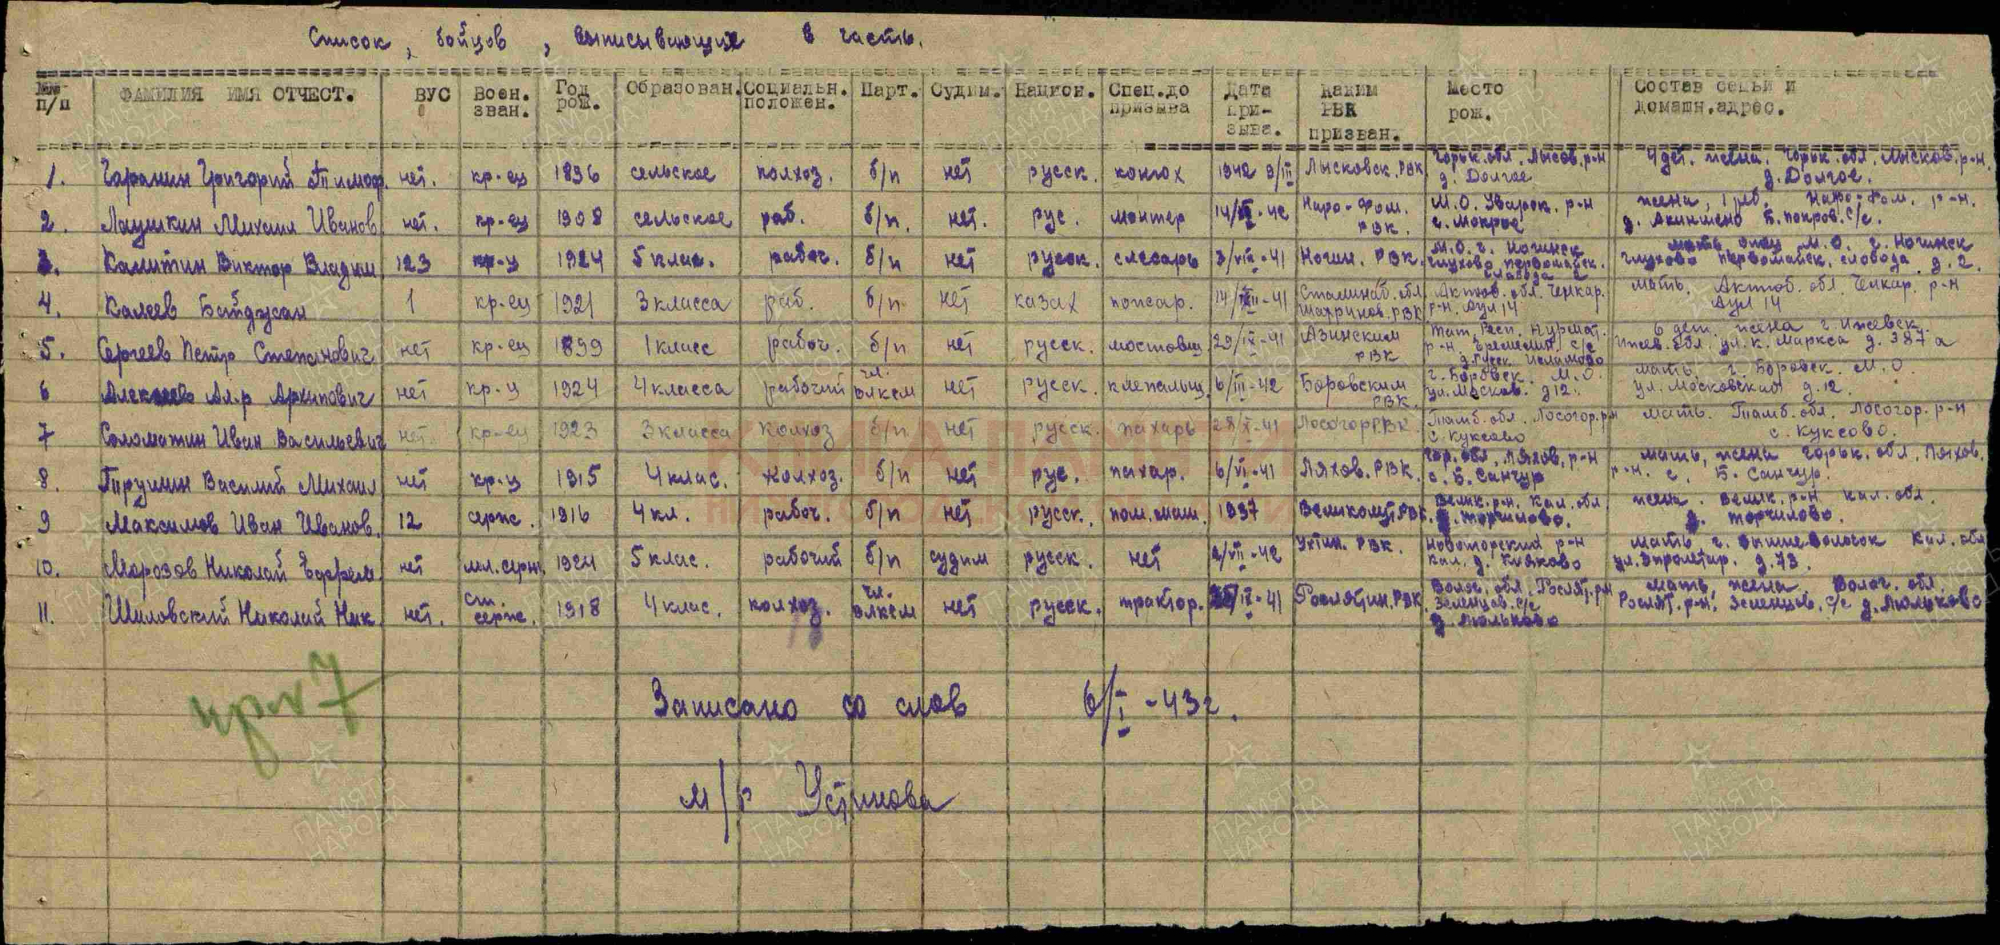 Список, бойцов, выписывающие в часть.
№№ п/п ФАМИЛИЯ ИМЯ ОТЧЕСТ. ВУС Воен. зван. Год рож. Образован. Социальн. положен. Парт. Судим. Национ. Спец.до призыва Дата при- зыва. Каким РВК призван. Место рож. Состав семьи и домашн.адрес.
1. Гаранин Григорий Тимоф. нет. кр-ец 1896 сельское колхоз. б/п нет русск. конюх 1942 9/III Лысковск. РВК Горьк. обл. Лысков. р-н д. Долгое 4 дет. жена. Горьк. обл. Лысков. р-н. д. Долгое.
2. Лаушкин Михаил Иванов. нет. кр-ец 1908 сельское раб. б/п. нет. рус. монтер Наро-Фом. РВК. М.О. Уваров. р-н с. Мокрое жена, 1 реб. Наро-Фом. р-н. д. Акиншено Б. покров. с/с.
3. Камитин Виктор Владим 123 кр-ц 1924 5 клас. рабоч. б/п нет русск. слесарь 3/VIII-41 Ногин. РВК. М.О. г. Ногинск глухово первомайск. слабода 2 мать, отец М.О. г. Ногинск глухово первомайск. слобода д. 2.
4. Калеев Байджан 1 кр-ец 1921 3 класса раб. б/п нет казах пожар. Сталинаб. обл Шахринов. РВК Актюб. обл. Ченкар. р-н. Аул 14 мать. Актюб. обл. Ченкар. р-н Аул 14
5. Сергеев Петр Степанович нет кр-ец 1899 1 класс рабоч. б/п нет русск. мостовщ 29/IX-41 Азинским РВК Тат. Респ. Нурлат. р-н. с/с д. Русск. 6 дет. жена г. Ижевск. Ижев. обл ул. К. Маркса д. 387 а
6 Алексеев Ал-р Архипович нет кр-ц 1924 4 класса рабочий чл. ВЛКСМ нет русск. клепальщ. 6/III-42 Боровским РВК. г. Боровск. М.О. ул. Москов. д 12. мать. г. Боровск. М.О. ул. Московская д. 12.
7 Соломатин Иван Васильевич нет. кр-ец 1923 3 класса колхоз б/п. нет русск. пахарь 28/X-41 Лосогор РВК. Тамб. обл. Лосогор. р-н с. Куксово мать. Тамб. обл. Лосогор. р-н с. Куксово.
8. Трушин Василий Михаил нет кр-ц 1915 4 клас. колхоз. б/п нет рус. пахар. 6/VI-41 Ляхов. РВК. Гор. обл. Ляхов. р-н с. Б. Санчур мать, жена Горьк. обл. Ляхов. р-н. с. Б. Санчур.
9 Максимов Иван Иванов. 12 серж. 1916 4 кл. рабоч. б/п нет русск. пом. маш. 1937 Великолук. РВК. Велик. р-н. Кал. обл д. торчилово. жена. Велик. р-н Кал. обл. д. торчилово.
10. Морозов Николай Ефрем нет мл. серж. 1924 5 клас. рабочий б/п судим русск. нет 2/VII-42 Ухтин. РВК. Новоторский р-н Кал. д. Князково мать г. Вышне Волочок Кал. обл ул. д. 73.
11. Шиловский Николай Ник нет. ст. серж. 1918 4 клас. колхоз. чл. ВЛКСМ нет русск. трактор. Рослятин. РВК Волог. обл. Рослят. р-н Зеленцов. с/с д. Люльково мать, жена. Волог. обл. Рослят. р-н. Зеленцов. с/с д. Люльково
Записано со слов 6/I-43г.
м/р Устинова
КНИГА ПАМЯТИ
НИЖЕГОРОДСКОЙ ОБЛАСТИ
ПАМЯТЬ НАРОДА